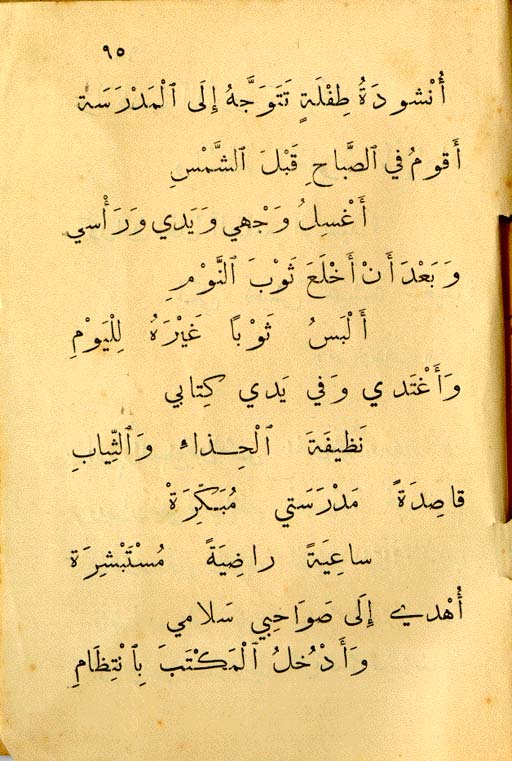 ٩٥
أُنْشودَةُ طِفْلَةٍ تَتَوَجَّهُ إِلَى ٱلْمَدْرَسَة
أَقومُ في ٱلصَّباحِ قَبْلَ ٱلشَّمْسِ
أَغْسِلُ وَجْهي وَيَدي وَرَأْسي
وَبَعْدَ أَنْ أَخْلَعَ ثَوْبَ ٱلنَّوْمِ
أَلْبَسُ ثَوْباً غَيْرَهُ لِلْيَوْمِ
وَأَغْتَدي وَفي يَدي كِتابي
نَظيفَةَ ٱلْحِـذاءِ وَٱلثِّيابِ
قاصِدَةً مَدْرَسَتي مُبَكِّرَةْ
ساعِيَةً راضِيَةً مُسْتَبْشِرَة
أُهْدي إِلَى صَوَاحِبي سَلامي
وَأَدْخُلُ ٱلْمَكْتَبَ بِٱنْتِظَامِ